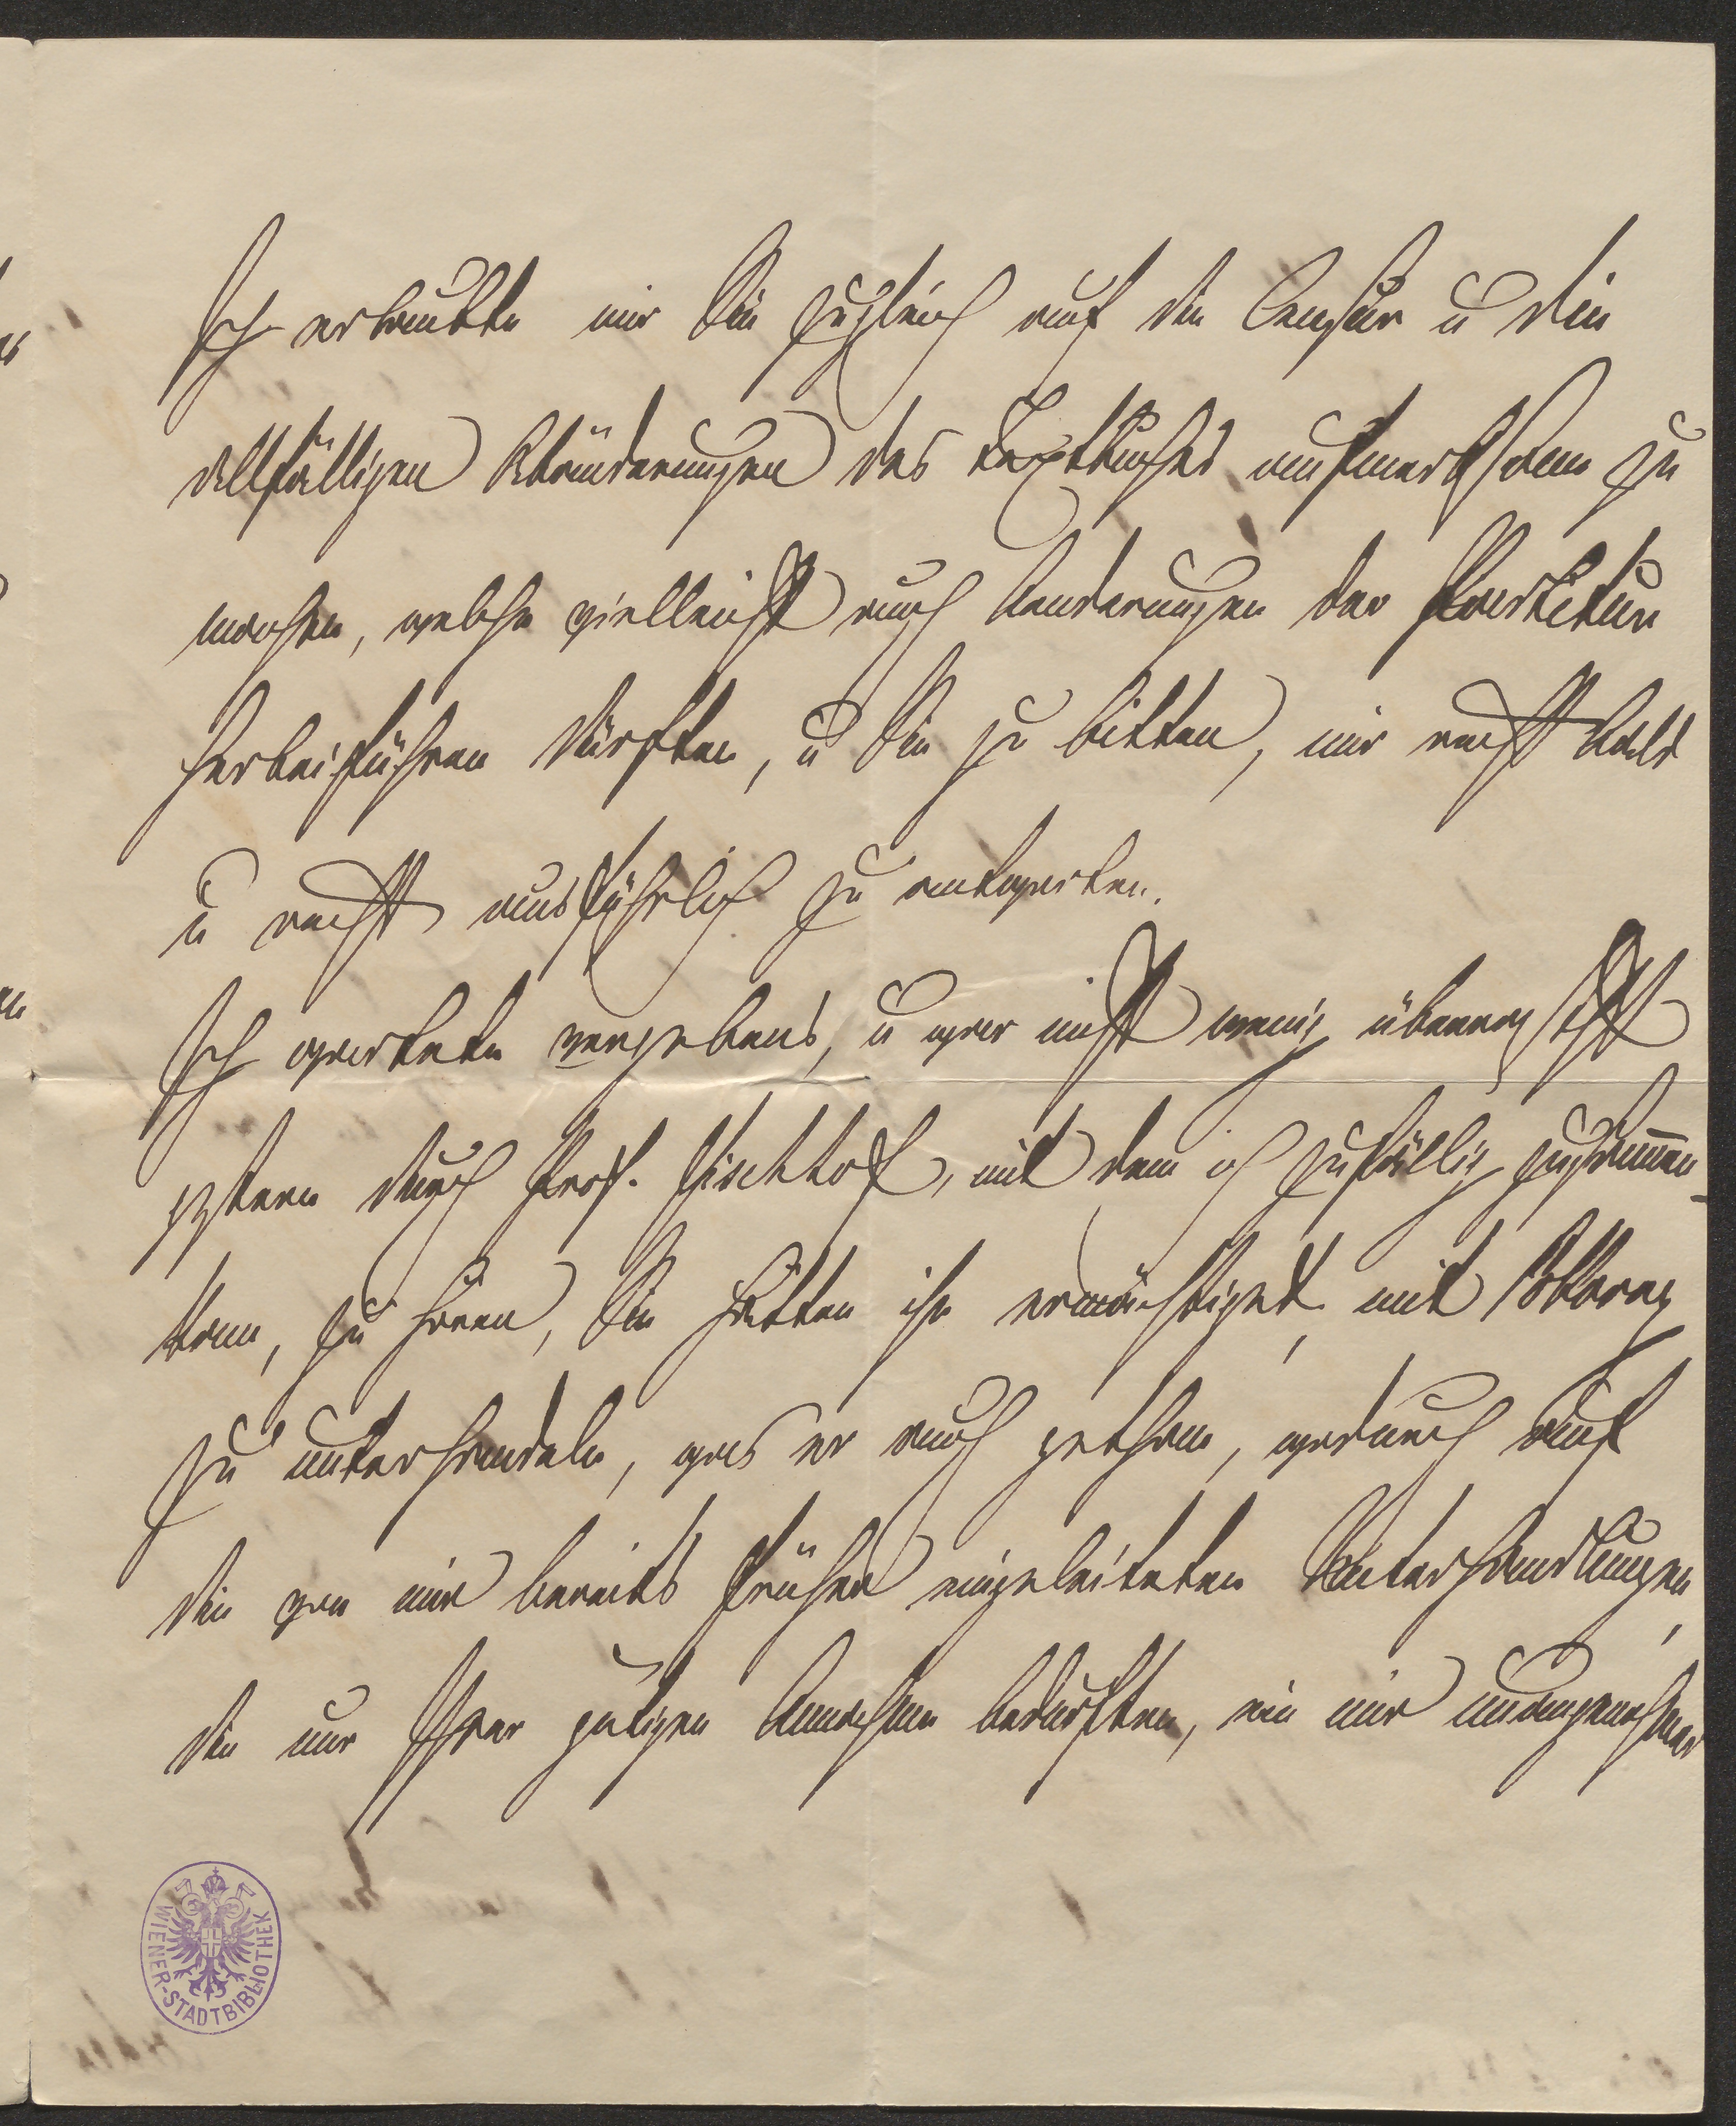 Ich erlaubte mir Sie zugleich auf die Censur u die
allfälligen Abänderungen des Textbuches aufmerksam zu
machen, welche vielleicht auch Aenderungen der Partitur
herbeiführen dürften, u Sie zu bitten, mir recht bald
u recht ausführlich zu antworten.
Ich wartete vergebens, u war nicht wenig überrascht
gestern durch Prof. Fischhof, mit dem ich zufällig zusammen-
kam, zu hören, Sie hätten ihn ermächtiget, mit Pokorny
zu unterhandeln, was er auch gethan, wodurch auf
die von mir bereits früher eingeleiteten Unterhandlungen,
die nur Ihrer gütigen Annahme bedurften, ein mir unangenehmes
WIENER-STADTBIBLIOTHEK